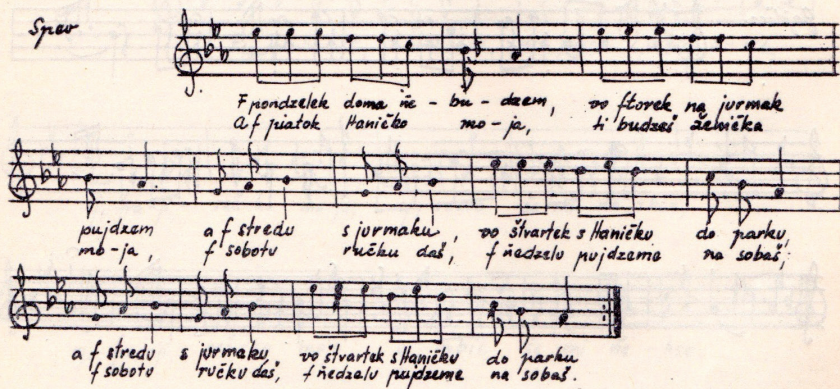 Spev
F pondzelek doma ňe - bu - dzem, vo ftorek na jurmak
A f piatok Haničko mo - ja, ti budzeš ženička
pujdzem a f stredu s jurmaku, vo štvartek s Haničku do parku,
mo - ja, f sobotu ručku daš, f ňedzelu pujdzeme na sobaš,
a f stredu s jurmaku vo štvartek s Haničku do parku
f sobotu ručku daš, f ňedzelu pujdzeme na sobaš.